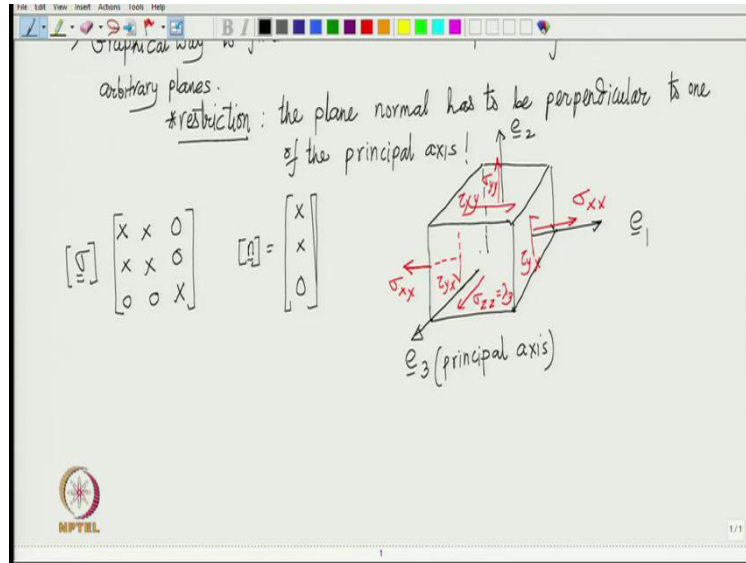 File Edit View Insert Actions Tools Help
B I
Graphical way to
arbitrary planes.
*restriction : the plane normal has to be perpendicular to one
of the principal axis!
e2
σyy
τxy
σxx
e1
τyx
[σ] [x x 0
x x 0
0 0 x]
[n] = [x
x
0]
σxx
τyx
σzz=λ3
e3 (principal axis)
NPTEL
1/1
1